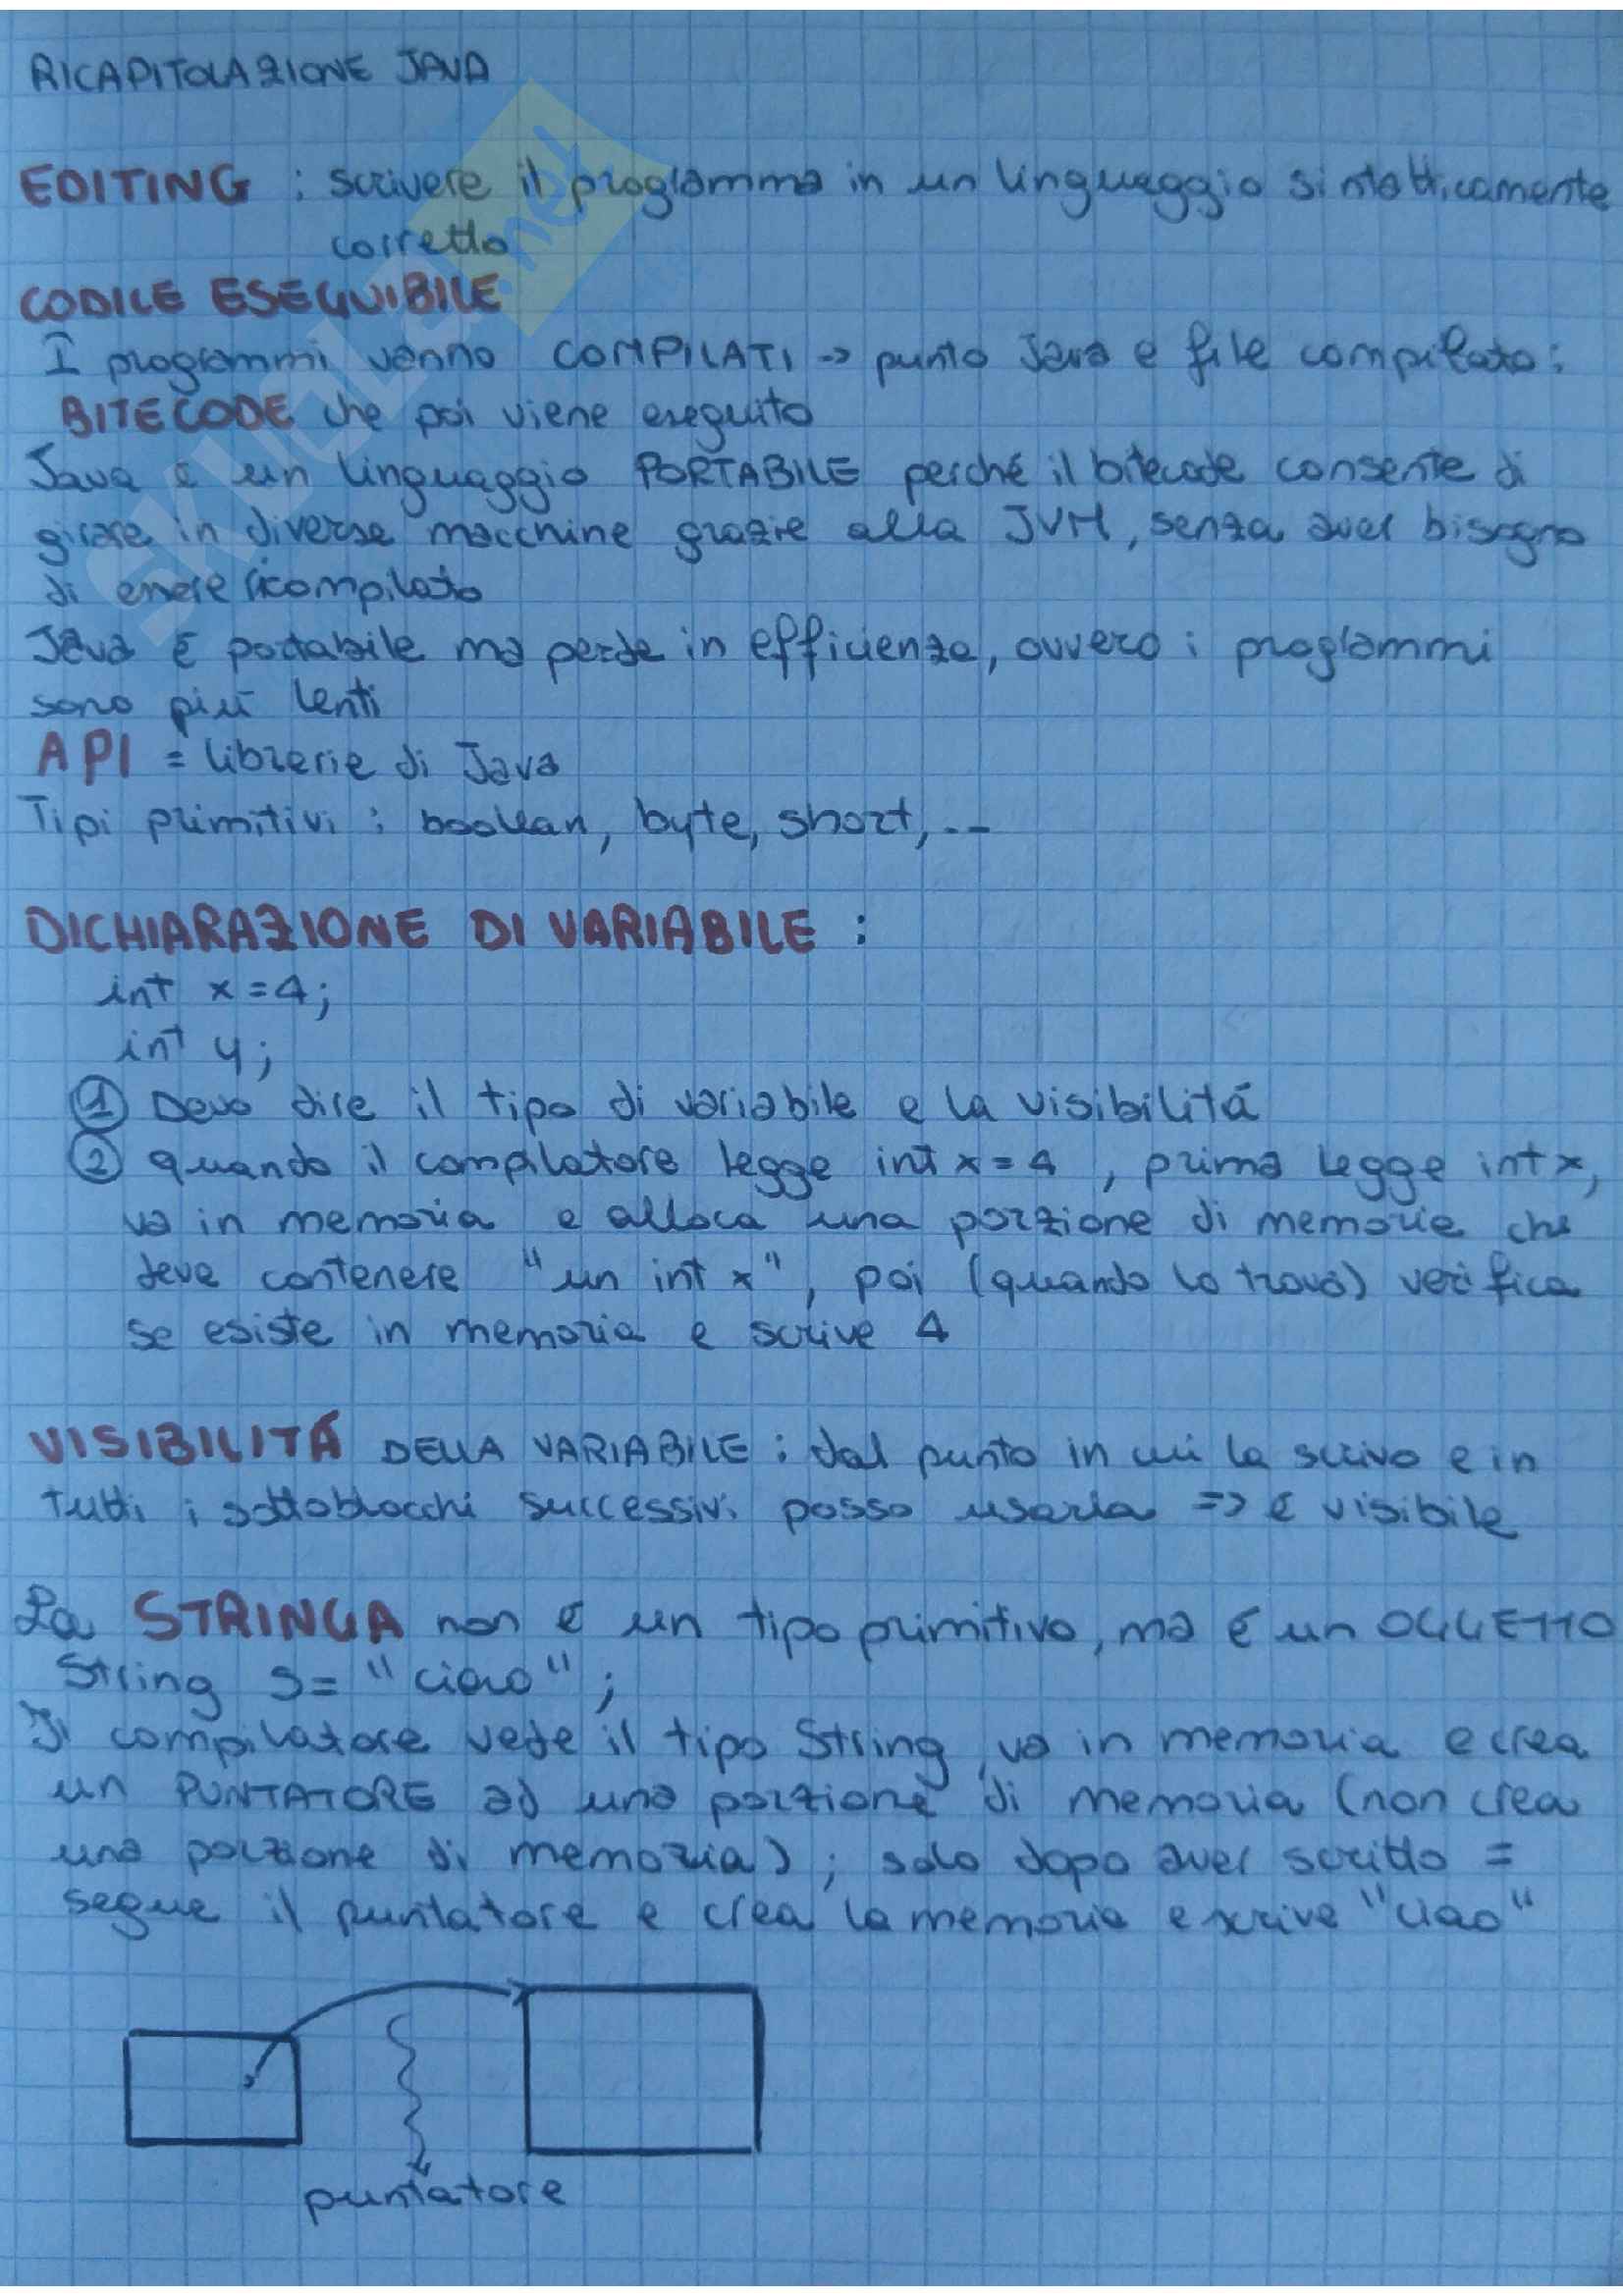 RICAPITOLAZIONE JAVA
EDITING : scrivere il programma in un linguaggio sintatticamente
corretto
CODICE ESEGUIBILE
I programmi vanno COMPILATI -> punto Java e file compilato:
BITECODE che poi viene eseguito
Java è un linguaggio PORTABILE perché il bitecode consente di
girare in diverse macchine grazie alla JVM, senza aver bisogno
di essere ricompilato
Java è portabile ma perde in efficienza, ovvero i programmi
sono più lenti
API = librerie di Java
Tipi primitivi : boolean, byte, short, --
DICHIARAZIONE DI VARIABILE :
int x = 4;
int y;
① Devo dire il tipo di variabile e la visibilitá
② quando il compilatore legge int x = 4 , prima legge int x,
va in memoria e alloca una porzione di memoria che
deve contenere "un int x", poi (quando lo trova) verifica
se esiste in memoria e scrive 4
VISIBILITÁ DELLA VARIABILE : dal punto in cui la scrivo e in
tutti i sottoblocchi successivi posso usarla => é visibile
La STRINGA non é un tipo primitivo, ma é un OGGETTO
String S= "ciao" ;
Il compilatore vede il tipo String, va in memoria e crea
un PUNTATORE ad una porzione di memoria (non crea
una porzione di memoria) ; solo dopo aver scritto =
segue il puntatore e crea la memoria e scrive "ciao"
puntatore
SKUOLA.net